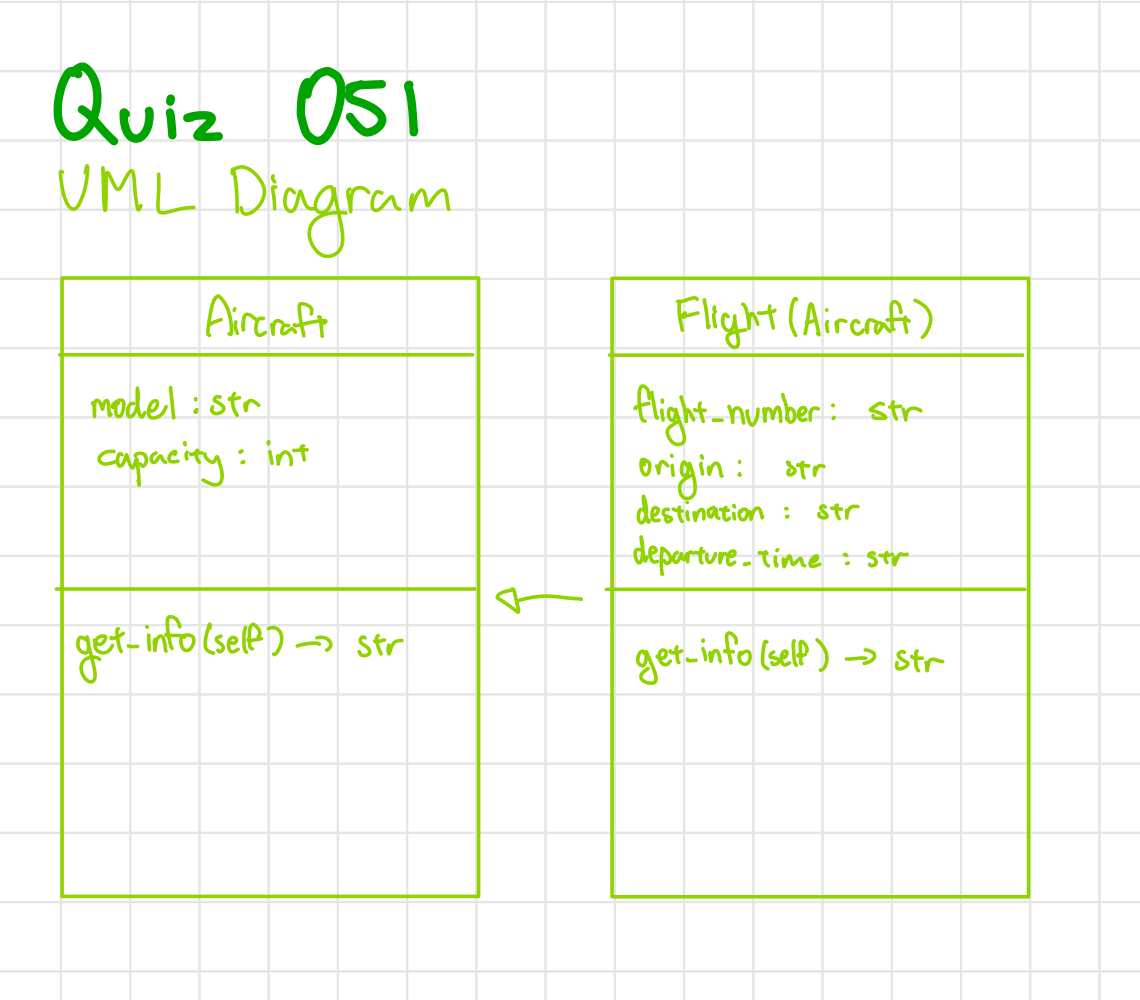 Quiz 051
UML Diagram
Aircraft
model : str
capacity : int
get_info(self) → str
Flight(Aircraft)
flight_number : str
origin : str
destination : str
departure_time : str
get_info(self) → str